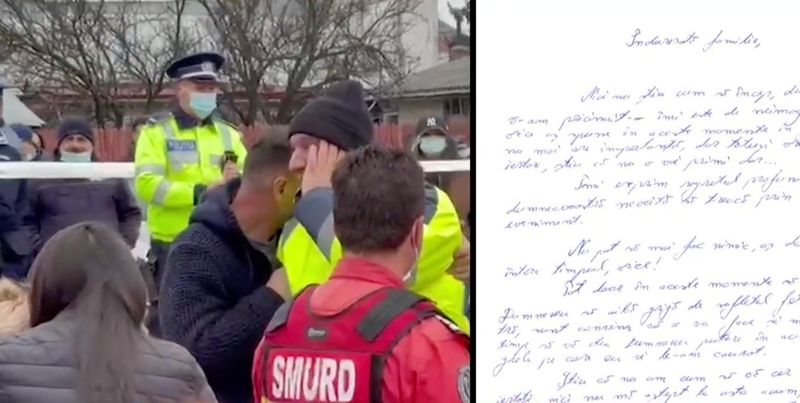 POLIȚIA
SMURD
Îndurerată familie,
Nici nu știu cum să încep, da
v-am pricinuit-o îmi este de neimag
orice aș spune în aceste momente în
nu mai are importanță, dar totuși
iertare, știu că nu o voi primi dar...
Îmi exprim regretul profun
dumneavoastră nevoită să treacă prin
eveniment.
Nu pot să mai fac nimic, aș d
întorc timpul, orice!
Tot dace în aceste momente să
Dumnezeu să aibă grijă de sufletul
tră, sunt convins că o va face și
timp să vă dea Dumnezeu putere în ac
grele pe care eu vi le-am cauzat.
Știu că nu am cum să vă cer
iertați nici nu mă aștept la asta acum